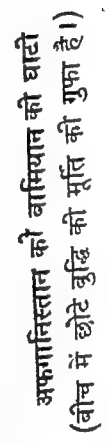 अफगानिस्तान की बामियान की घाटी
(बीच में छोटे बुद्धि की मूर्ति की गुफा है।)